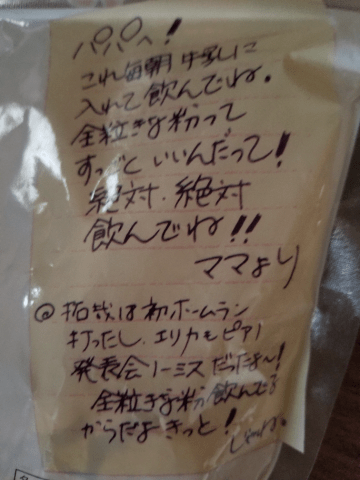 パパへ!
これ毎朝 牛乳に
入れて飲んでね。
全粒きな粉って
すっごく いいんだって!
絶対、絶対
飲んでね!!
ママより
@拓哉は初ホームラン
打ったし、エリカもピアノ
発表会ノーミスだったよ〜!
全粒きな粉飲んでる
からだよ きっと!
じゃね。